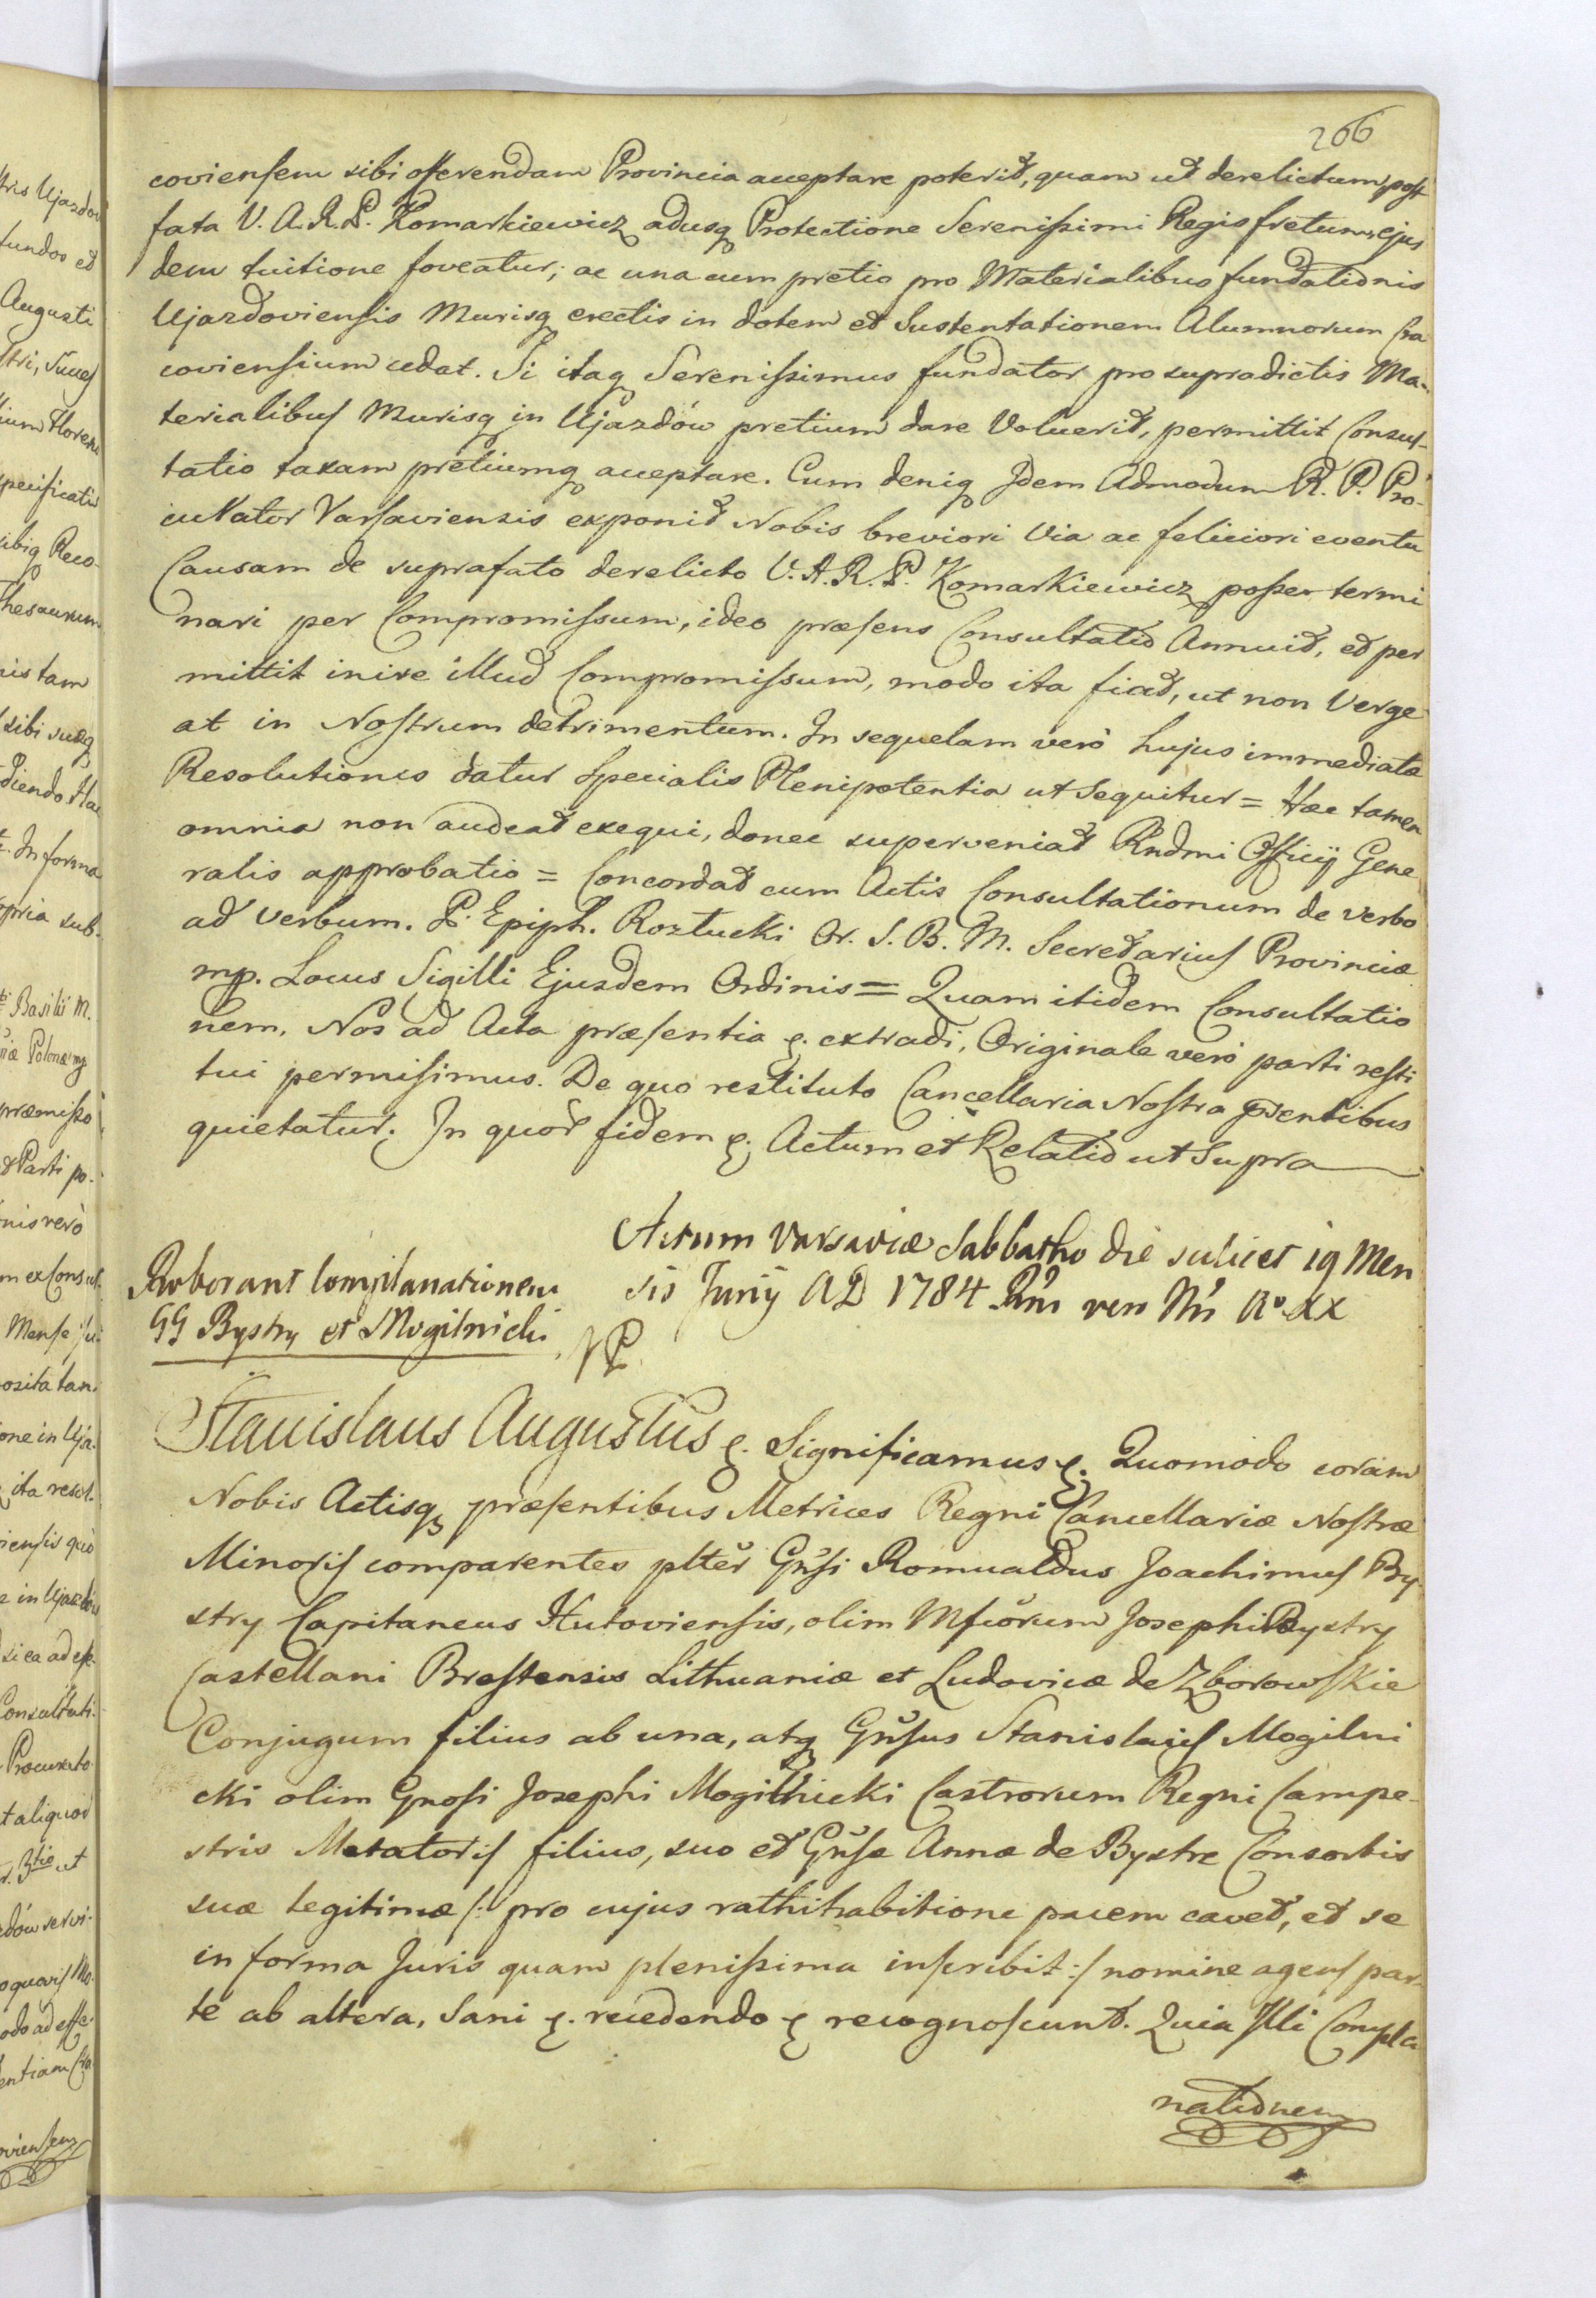 266
coviensem sibi offerendam Provincia acceptare poterit, quam ut derelictum post
fata V. A. R. P. Komarkiewicz adusq Protectione Serenissimi Regis fretum, ejus
dem tuitione foveatur; ac una cum pretio pro Materialibus fundationis
Ujazdoviensis Murisq erectis in dotem et Sustentationem Alumnorum Cra
coviensium cedat. Si itaq Serenissimus fundator pro supradictis Ma-
terialibus Murisq in Ujazdów pretium dare Voluerit, permittit Consul-
tatio taxam pretiumq acceptare. Cum deniq Idem Admodum R. P. Pro-
curator Varsaviensis exponit Nobis breviori Via ac feliciori eventu
Causam de suprafato derelicto V. A. R. P. Komarkiewicz posse termi
nari per Compromissum, ideo præsens Consultatio Annuit, et per
mittit inire illud Compromissum, modo ita fiat, ut non Verge
at in Nostrum detrimentum. In sequelam verò hujus immediatæ
Resolutiones datur Specialis Plenipotentia ut Sequitur = Hæc tamen
omnia non audeat exequi, donec superveniat Rndmi Officij Gene
ralis approbatio = Concordat cum Actis Consultationum de verbo
ad verbum. P. Epiph. Roztucki Or. S. B. M. Secretarius Provinciæ
mp. Locus Sigilli Ejusdem Ordinis = Quam itidem Consultatio
nem, Nos ad Acta præsentia &. extradi, Originale verò parti resti
tui permisimus. De quo restituto Cancellaria Nostra pntibus
quietatur. In quor fidem &. Actum et Relatio ut Supra
Actum Varsaviæ Sabbatho die scilicet 19 Men
Roborant Complanationem sis Junij AD 1784 Rni vero Nri Aº XX
GG Bystry et Mogilnicki
Stanislaus Augustus &. Significamus &. Quomodo coram
Nobis Actisq præsentibus Metrices Regni Cancellariæ Nostræ
Minoris comparentes plter Gnsi Romualdus Joachimus By
stry Capitaneus Hutoviensis, olim Mfcorum Josephi Bystry
Castellani Brestensis Lithuaniæ et Ludovicæ de Zborowskie
Conjugum filius ab una, atq Gnsus Stanislaus Mogilni
cki olim Gnosi Josephi Mogilnicki Castrorum Regni Campe-
stris Metatoris filius, suo et Gnsæ Annæ de Bystre Consortis
suæ legitimæ /: pro cujus rathihabitione pacem cavet, et se
in forma Juris quam plenissima inscribit :/ nomine agens par-
te ab altera, Sani &. recedendo & recognoscunt. Quia Illi Compla
nationem